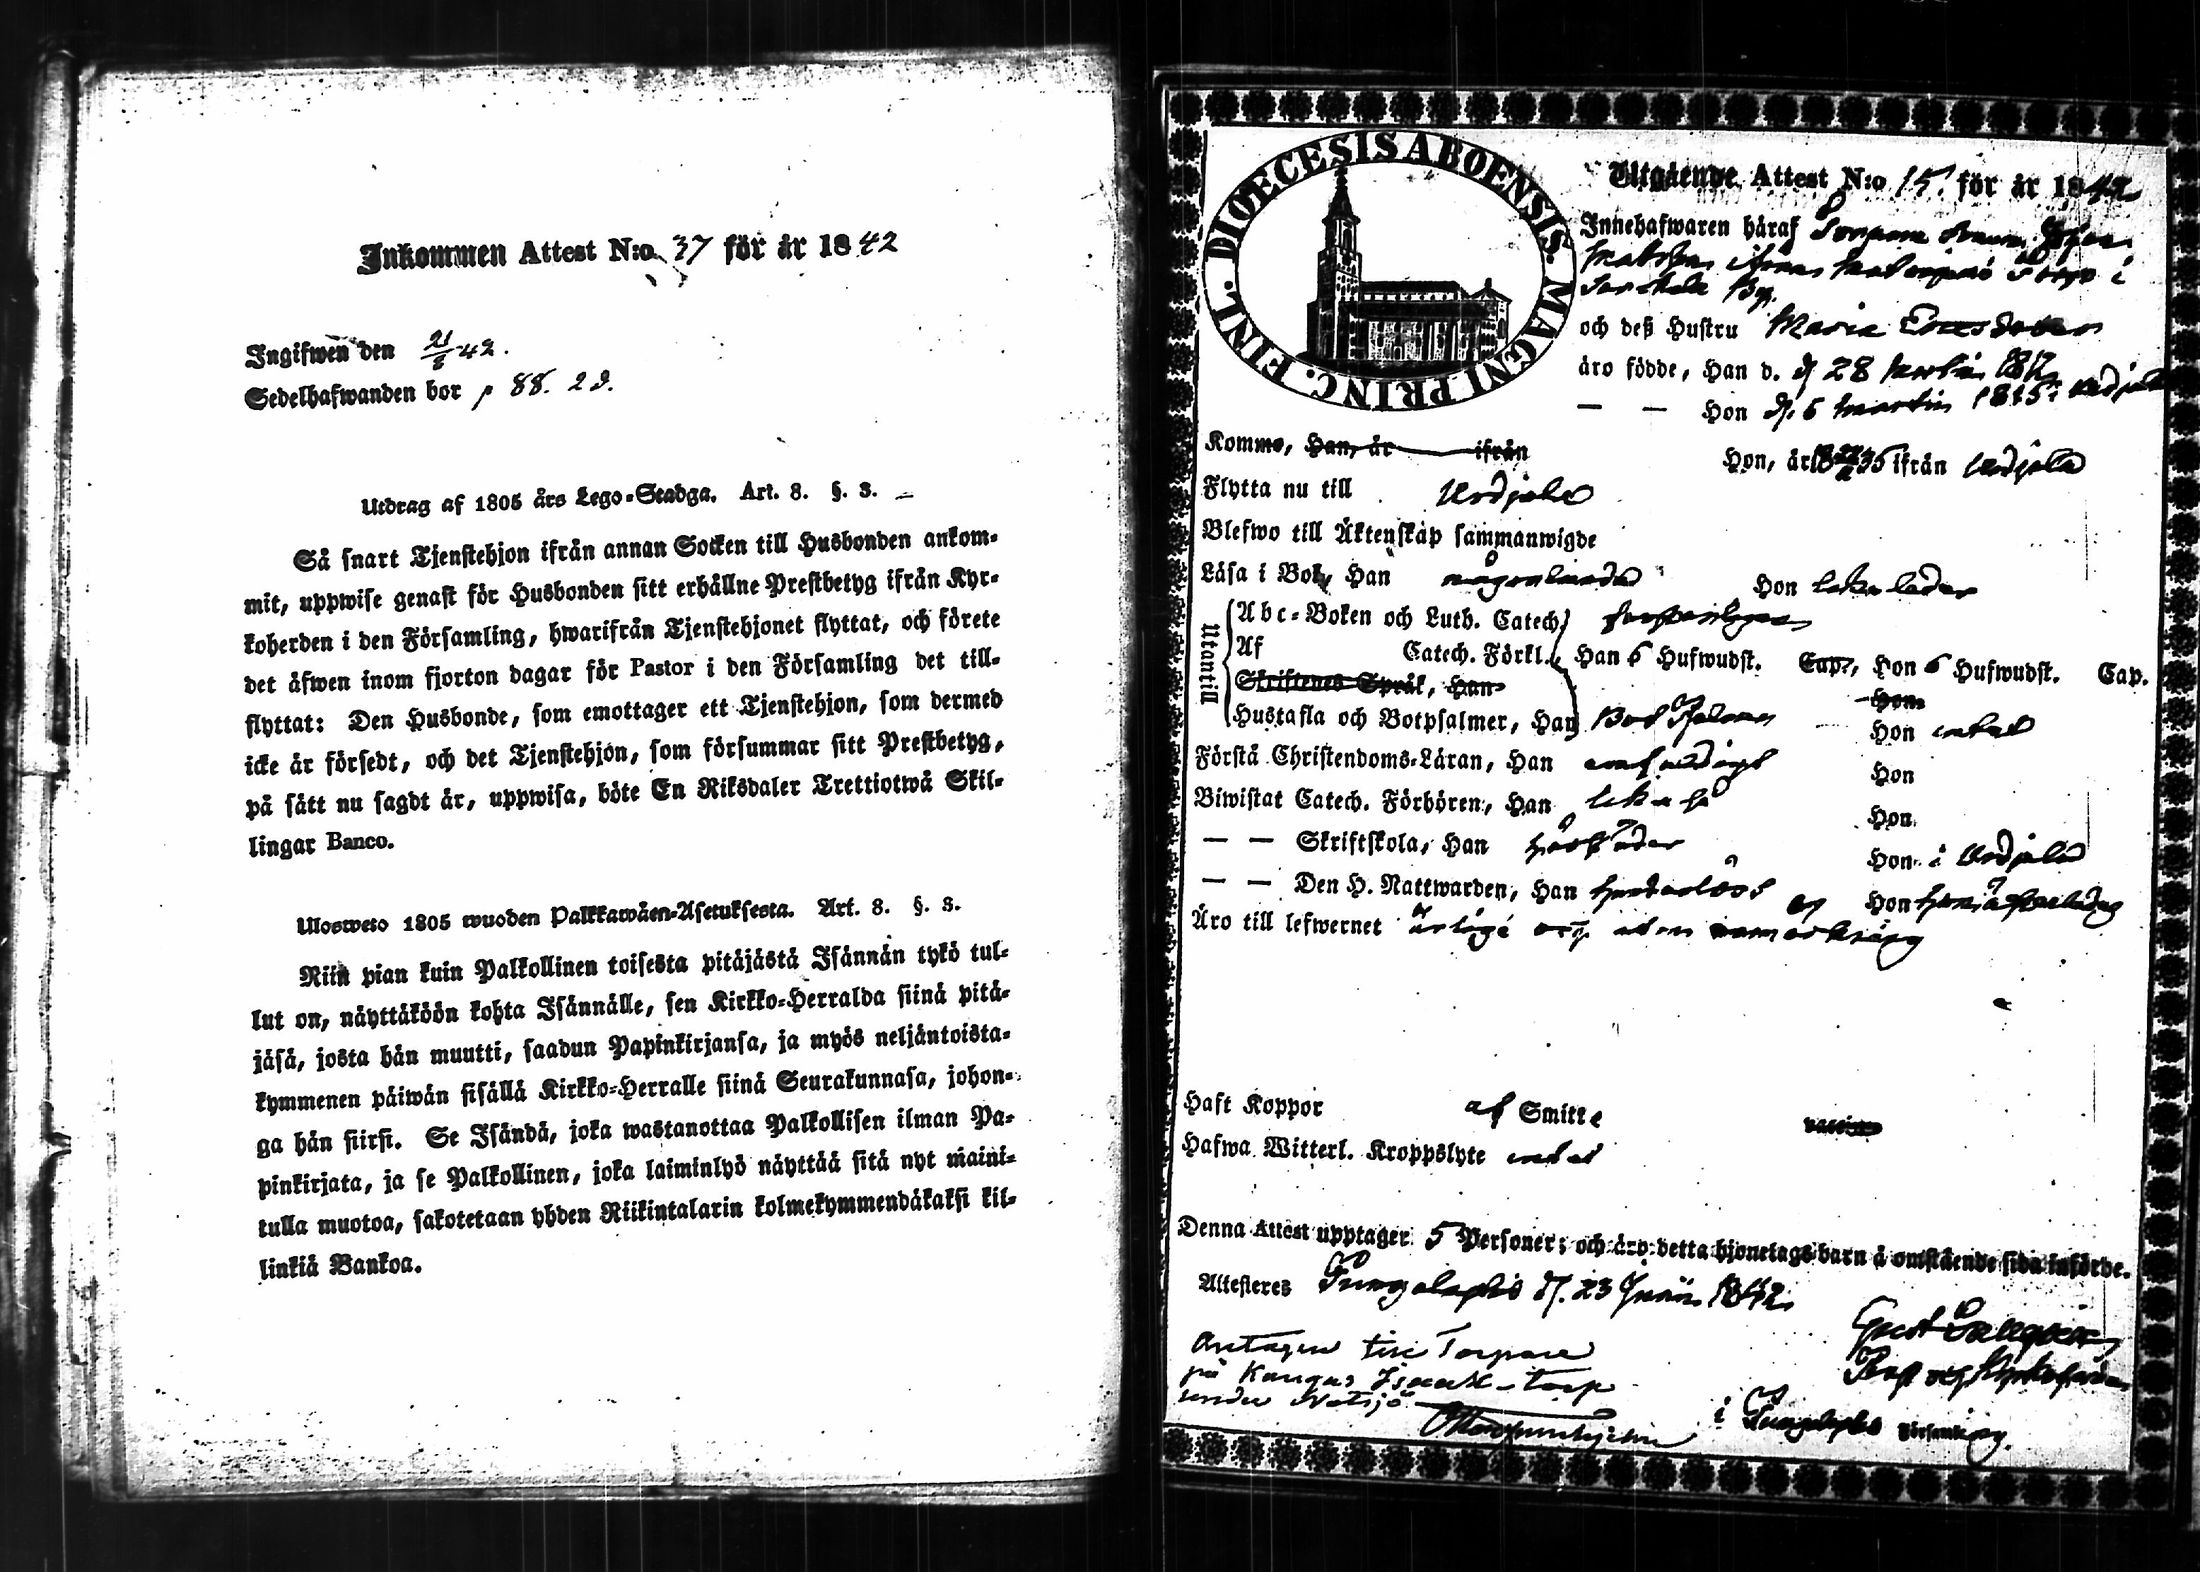 Inkommen Attest N:o 37 för år 1842
Ingifwen den 21/8 42.
Sedelhafwanden bor p 88. 2 d.
Utdrag af 1805 års Lego-Stadga. Art. 8. §. 3.
Så snart Tjenstehjon ifrån annan Socken till Husbonden ankom-
mit, uppwise genast för Husbonden sitt erhållne Prestbetyg ifrån Kyr-
koherden i den Församling, hwarifrån Tjenstehjonet flyttat, och förete
det äfwen inom fjorton dagar för Pastor i den Församling det till-
flyttat: Den Husbonde, som emottager ett Tjenstehjon, som dermed
icke är försedt, och det Tjenstehjon, som försummar sitt Prestbetyg,
på sätt nu sagdt är, uppwisa, böte En Riksdaler Trettiotwå Skil-
lingar Banco.
Ulosweto 1805 wuoden Palkkawäen-Asetuksesta. Art. 8. §. 3.
Niin pian kuin Palkollinen toisesta pitäjästä Isännän tykö tul-
lut on, näyttäköön kohta Isännälle, sen Kirkko-Herralda siinä pitä-
jäsä, josta hän muutti, saadun Papinkirjansa, ja myös neljäntoista-
kymmenen päiwän sisällä Kirkko-Herralle siinä Seurakunnasa, johon-
ga hän siirsi. Se Isändä, joka wastanottaa Palkollisen ilman Pa-
pinkirjata, ja se Palkollinen, joka laiminlyö näyttää sitä nyt maini-
tulla muotoa, sakotetaan yhden Riikintalarin kolmekymmendäkaksi kil-
linkiä Bankoa.
DIOECESIS ABOENSIS. MAGNI PRINC. FINL.
Utgående Attest N:o 15. för år 1842
Innehafwaren häraf
i
By.
och deß Hustru Maria Ericsdotter
äro födde, Han d. 28 Martii 1812
— — Hon d. 6 Martii 1815 i Urdjala
Komme, Han, år ifrån Hon, år 1835 ifrån Urdjala
Flytta nu till Urdjala
Blefwo till Äktenskap sammanwigde
Läsa i Bok, Han någorlunda Hon lika ledes
Utantill
Abc-Boken och Luth. Catech.
Af Catech. Förkl. Han 6 Hufwudst. Cap., Hon 6 Hufwudst. Cap.
Skriftenes Språk, Han Hon
Hustafla och Botpsalmer, Han Bot Psalmer Hon intet
Förstå Christendoms-Läran, Han enfaldigt Hon
Biwistat Catech. Förhören, Han lika så Hon
— — Skriftskola, Han härstädes Hon i Urdjala
— — Den H. Nattwarden, Han Hon
Äro till lefwernet ärlige och utan anmärkning
Haft Koppor af Smitte
Hafwa Witterl. Kroppslyte intet
Denna Attest upptager 5 Personer; och äro detta hjonelags barn å omstående sida införde.
Attesteres Pungalaitio d. 23 Junii 1842
Antagen till Torpare
på Kangas Isaack-torp
under Notsjö
i Pungalaitio Församling.